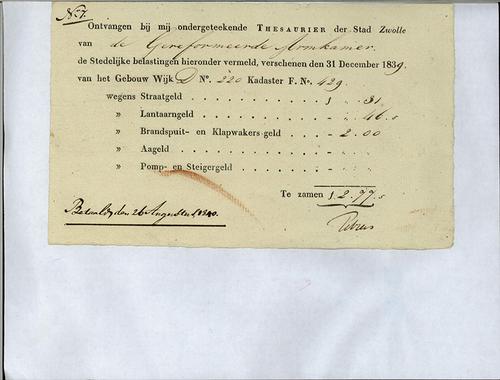 No. 7.
Ontvangen bij mij ondergeteekende THESAURIER der Stad Zwolle
van de Gereformeerde Armkamer
de Stedelijke belastingen hieronder vermeld, verschenen den 31 December 1839.
van het Gebouw Wijk D No. 220 Kadaster F. No. 429
wegens Straatgeld . . . . . . . . . . 31
» Lantaarngeld . . . . . . . . . 46.5
» Brandspuit- en Klapwakersgeld . . . . 2.00
» Aageld . . . . . . . . . . . .
» Pomp- en Steigergeld . . . . . . .
Te zamen 2.77.5
Betaald den 26 Augustus 1840.